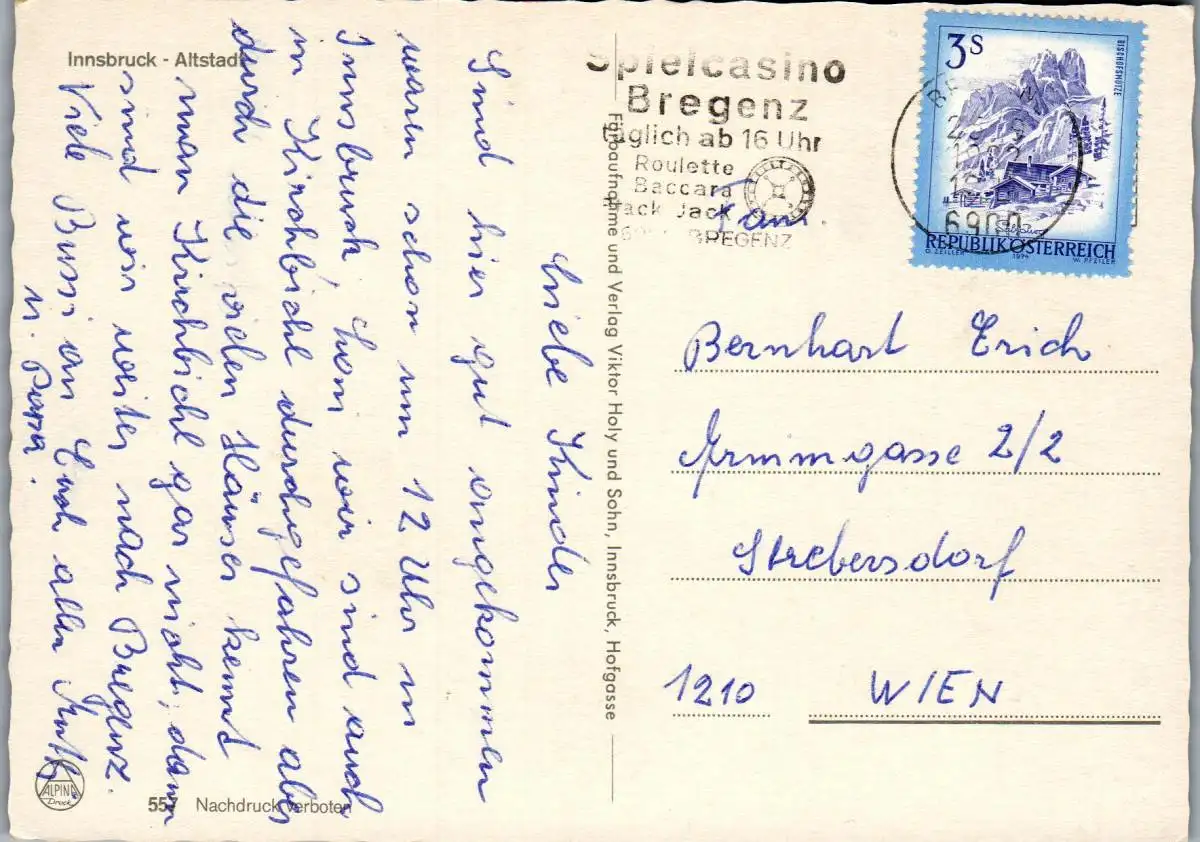 Innsbruck - Altstadt
Liebe Kinder
Sind hier gut angekommen
waren schon um 12 Uhr in
Innsbruck, Lomi wir sind auch
in Kirchbichl durchgefahren aber
durch die vielen Häuser kennt
man Kirchbichl gar nicht, dann
sind wir weiter nach Bregenz.
Viele Bussi an Euch allen Mutti
u. Papa.
ALPINA
Druck
557 Nachdruck verboten
Fotoaufnahme und Verlag Viktor Holy und Sohn, Innsbruck, Hofgasse
Spielcasino
Bregenz
Täglich ab 16 Uhr
Roulette
Baccara
Jack
BREGENZ
Fam.
6900
3 S
BISCHOFSMÜTZE
REPUBLIK ÖSTERREICH
O. ZEILLER 1974 W. PFEILER
Bernhart Erich
Grimmgasse 2/2
Strebersdorf
1210 WIEN